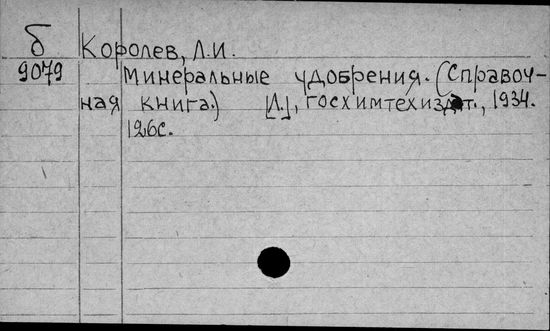 б
Королев, Л.И.
9079
Минеральные удобрения. (Справоч-
ная книга.) [Л.], Госхимтехиздат., 1934.
126с.